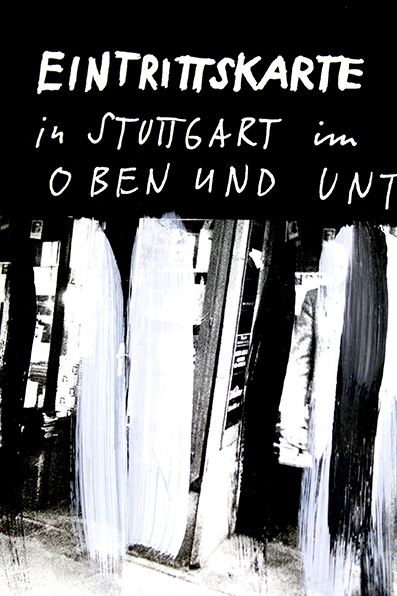 EINTRITTSKARTE
in STUTTGART im
OBEN UND UNT